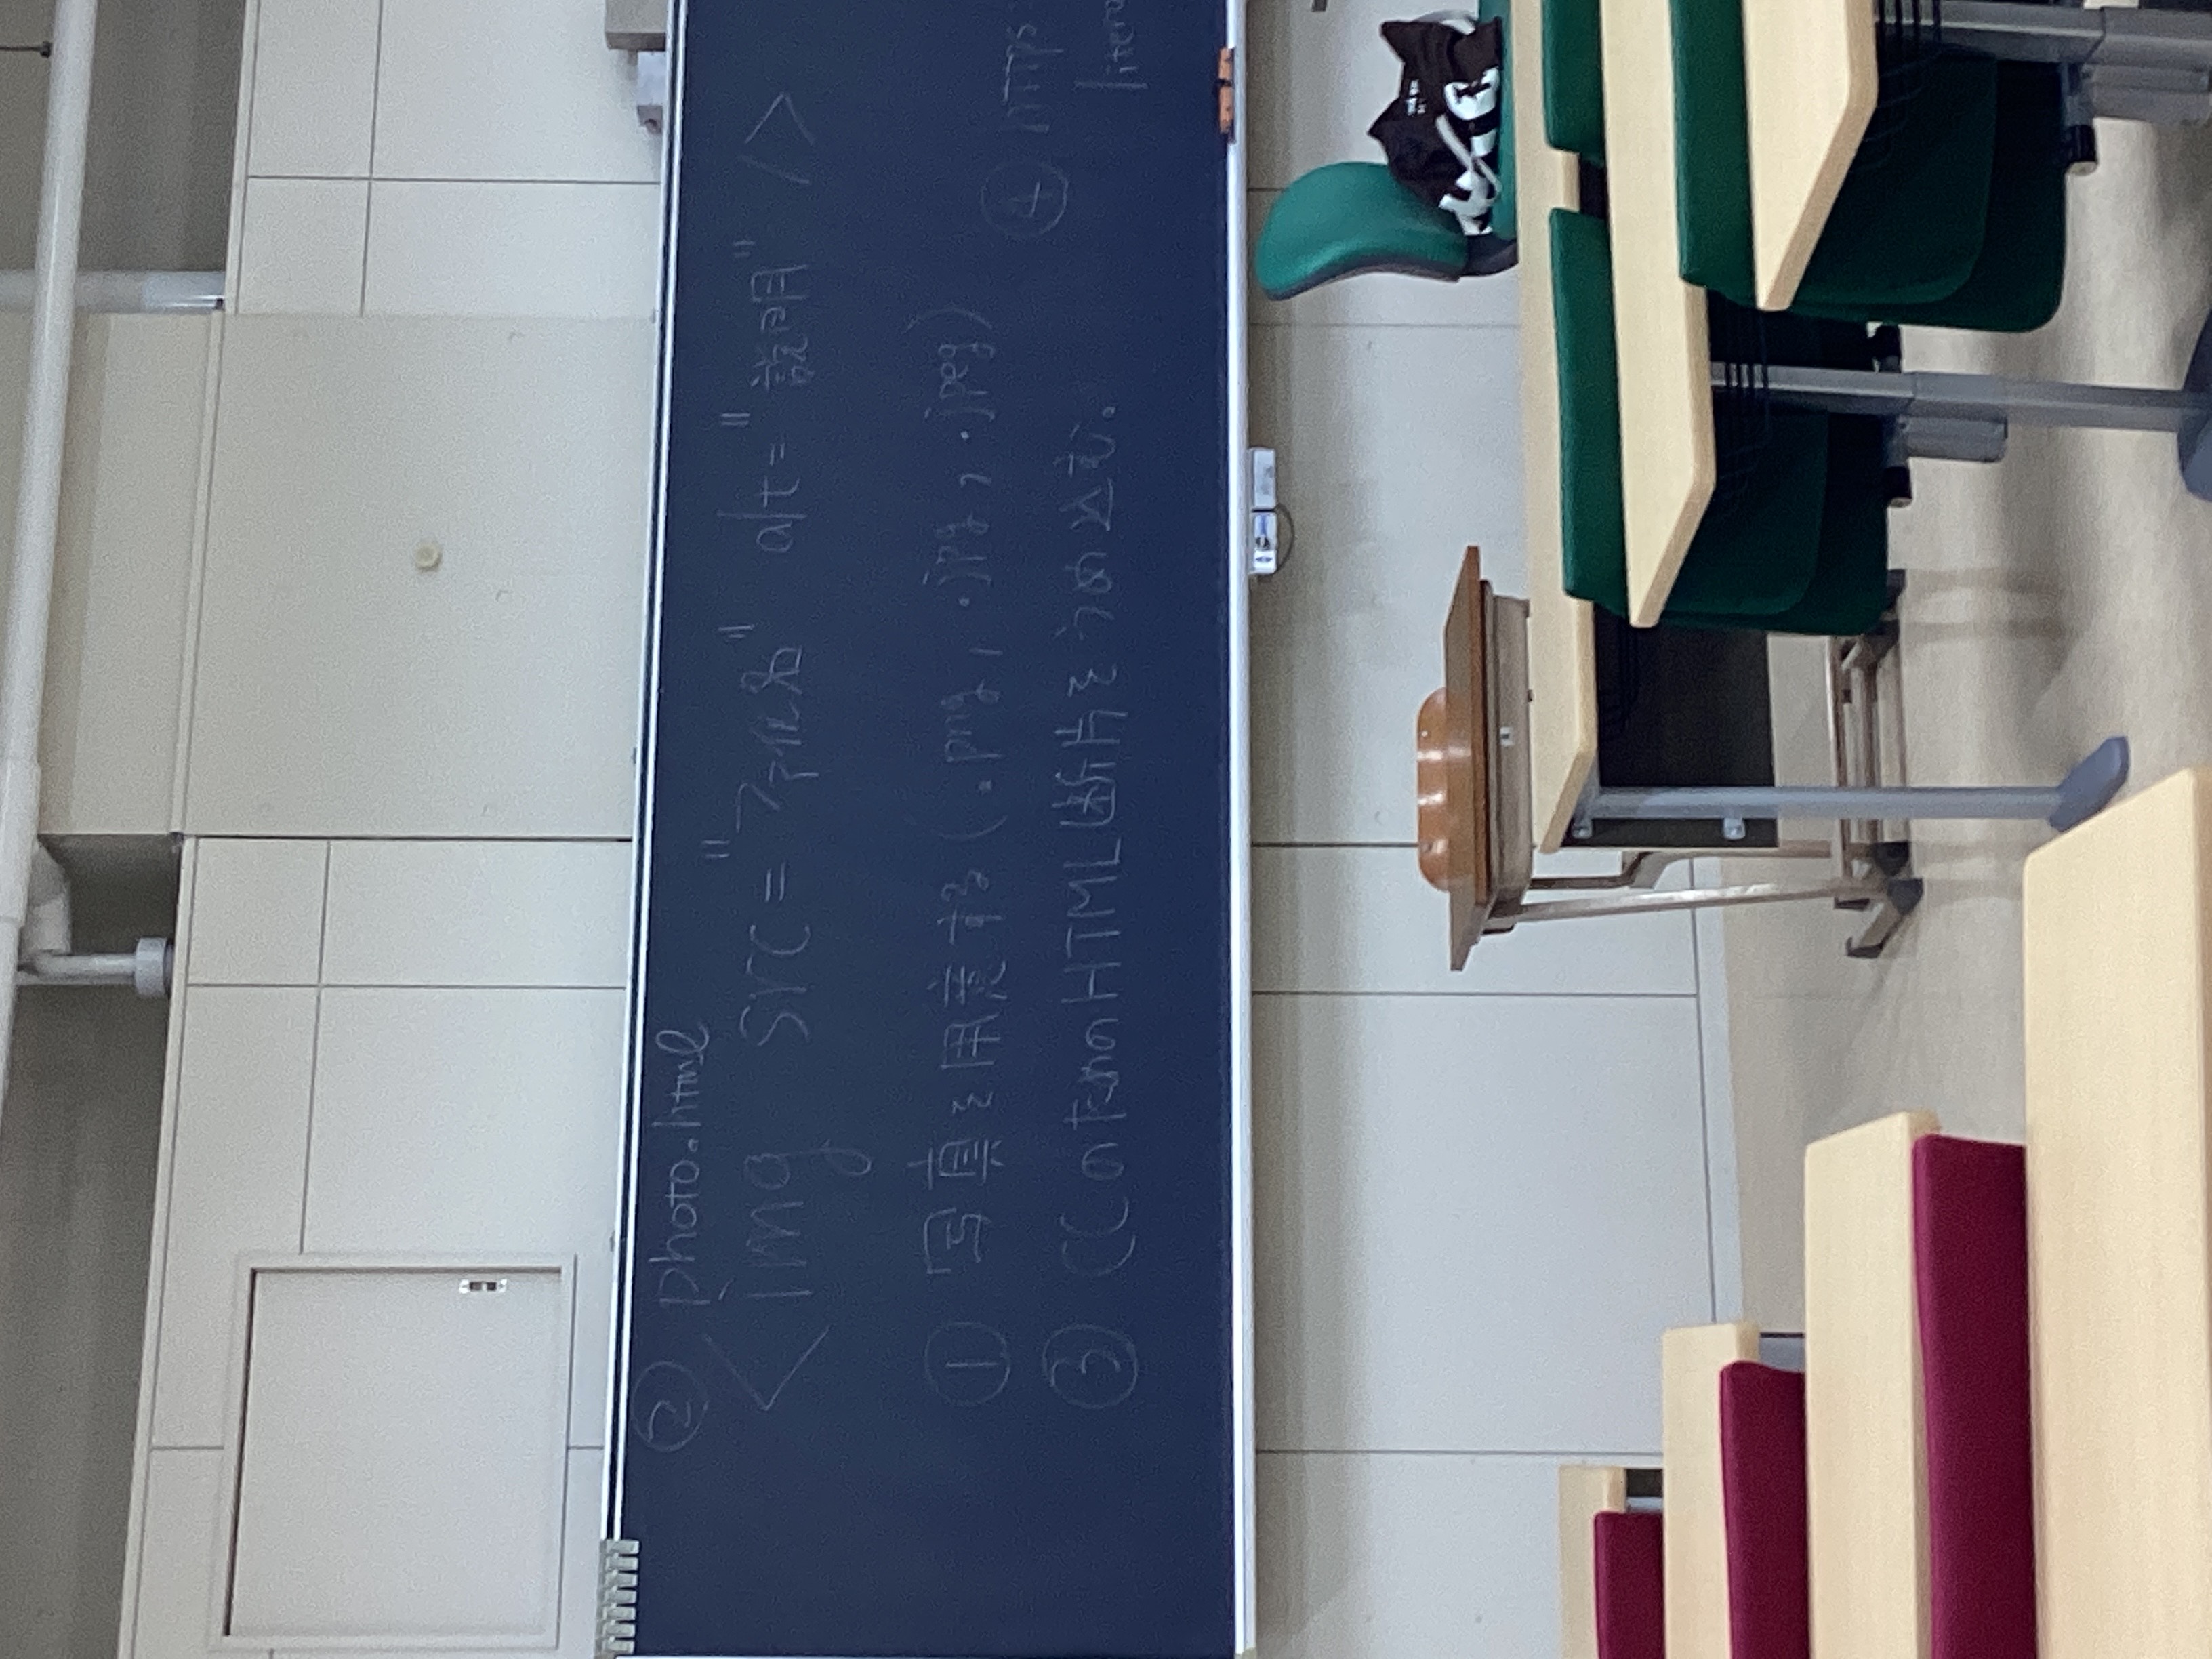 ② photo.html
<img src="ファイル名" alt="説明" />
① 写真を用意する(.png, .jpg, .jpeg)
③ CCのためのHTML断片をうめ込む。
④ https